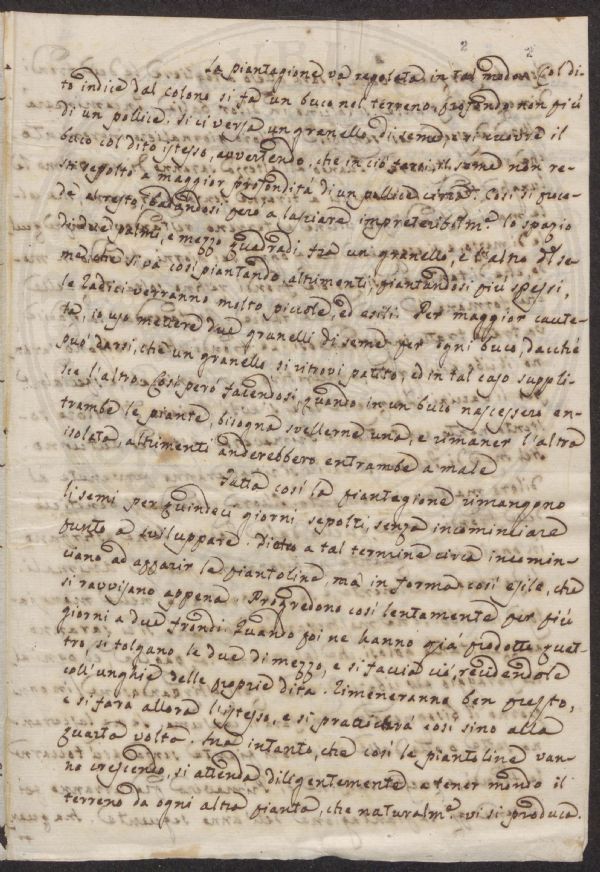 2 2
La piantagione va regolata in tal modo. Col di-
to indice dal colono si fa un buco nel terreno, profondo non più
di un pollice. Si ci versa un granello di seme, e si ricuopre il
buco col dito istesso, avvertendo, che in ciò fare, il seme non re-
sti sepolto a maggior profondità di un pollice circa. Così si proce-
de al resto, badandosi però a lasciare impreteribilm.e lo spazio
di due palmi, e mezzo quadrati tra un granello, e l'altro di se-
me, che si va così piantando, altrimenti, piantandosi più spessi,
le radici verranno molto picciole, ed esili. Per maggior caute-
la, io uso mettere due granelli di seme per ogni buco, dacchè
può darsi, che un granello si ritrovi patito, ed in tal caso suppli-
sce l'altro. Così però facendosi, quando in un buco nascessero en-
trambe le piante, bisogna svellerne una, e rimaner l'altra
isolata, altrimenti anderebbero entrambe a male
Fatta così la piantagione rimangono
li semi per quindeci giorni sepolti, senza incominciare
punto a sviluppare. Dietro a tal termine circa incomin-
ciano ad apparir le piantoline, ma in forma così esile, che
si ravvisano appena. Progredono così lentamente per più
giorni a due frondi. Quando poi ne hanno già prodotte quat-
tro, si tolgano le due di mezzo, e si faccia ciò, recidendole
coll'unghie delle proprie dita. Rimeneranno ben presto,
e si farà allora l'istesso, e si pratticherà così sino alla
quarta volta. Ma intanto, che così le piantoline van-
no crescendo, si attenda diligentemente a tener mondo il
terreno da ogni altra pianta, che naturalm.e vi si produca.